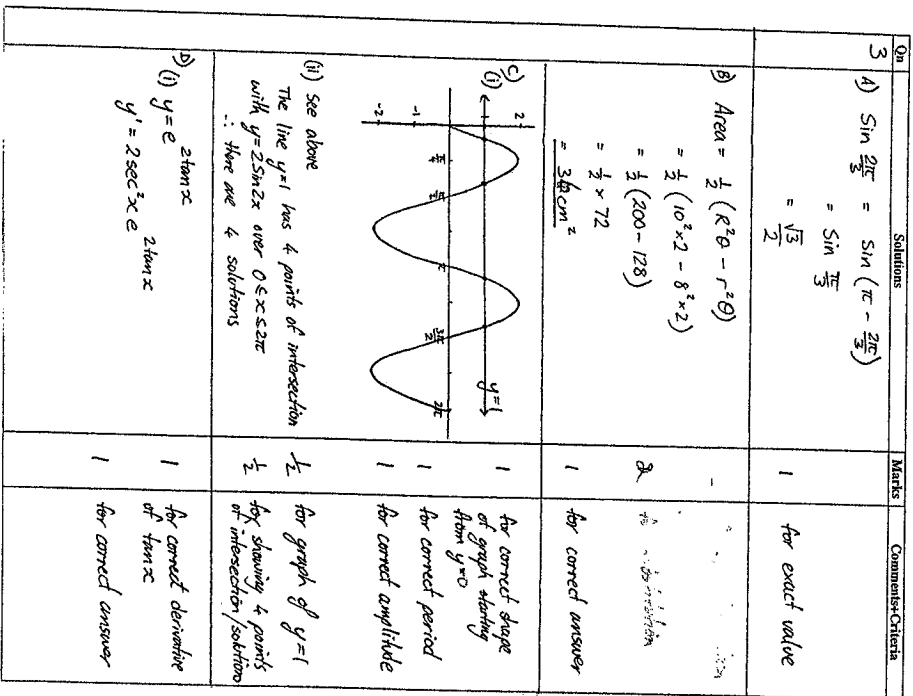 Qn Solutions Marks Comments+Criteria
3 A) Sin 2π/3 = Sin (π - 2π/3)
= Sin π/3
= √3/2
1 for exact value
B) Area = 1/2 (R²θ - r²θ)
= 1/2 (10²×2 - 8²×2)
= 1/2 (200 - 128)
= 1/2 × 72
= 36cm²
2
1 for correct answer
C)
(i)
2
1
-1
-2
π/4 π/2 π 3π/2 2π
y=1
1 for correct shape
of graph starting
from y=0
1 for correct period
1 for correct amplitude
(ii) See above
The line y=1 has 4 points of intersection
with y=2Sin2x over 0≤x≤2π
∴ there are 4 solutions
1/2 for graph of y=1
1/2 for showing 4 points
of intersection/solutions
D)
(i) y = e^2tanx
y' = 2sec²x e^2tanx
1 for correct derivative
of tanx
1 for correct answer